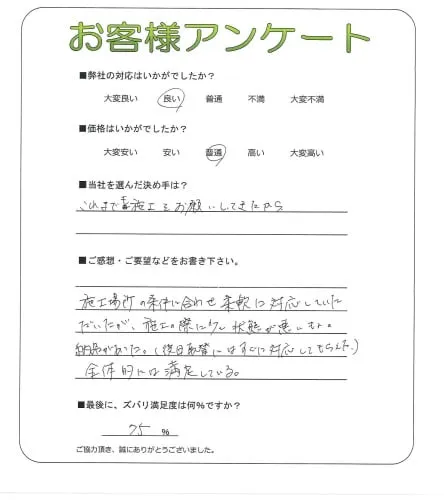 お客様アンケート
■弊社の対応はいかがでしたか？
大変良い 良い 普通 不満 大変不満
■価格はいかがでしたか？
大変安い 安い 普通 高い 大変高い
■当社を選んだ決め手は？
これまでも施工をお願いしてきたから
■ご感想・ご要望などをお書き下さい。
施工場所の条件に合わせ柔軟に対応していた
だいたが、施工の際に少し状態が悪いもの
納品があった。（後日取替にはすぐに対応してもらえた。）
全体的には満足している。
■最後に、ズバリ満足度は何％ですか？
75 %
ご協力頂き、誠にありがとうございました。